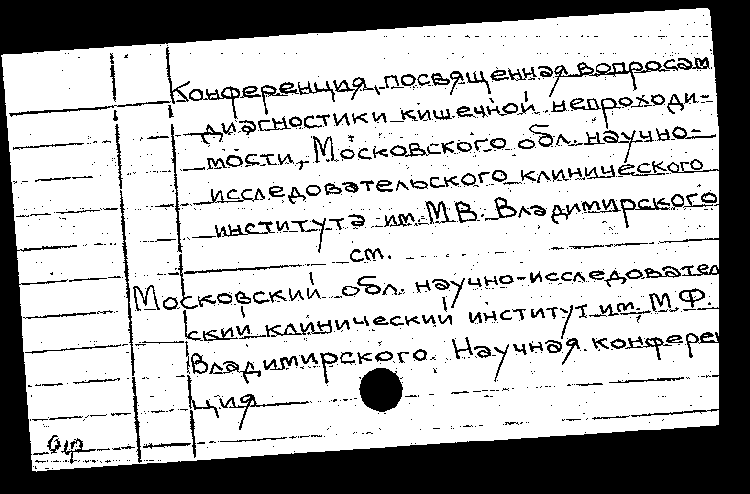 Конференция, посвященная вопросам
диагностики кишечной непроходи-
мости, Московского обл. научно-
исследовательского клинического
института им. М.В. Владимирского
см.
Московский обл. научно-исследовател
ский клинический институт им. М.Ф.
Владимирского. Научная конферен
ция